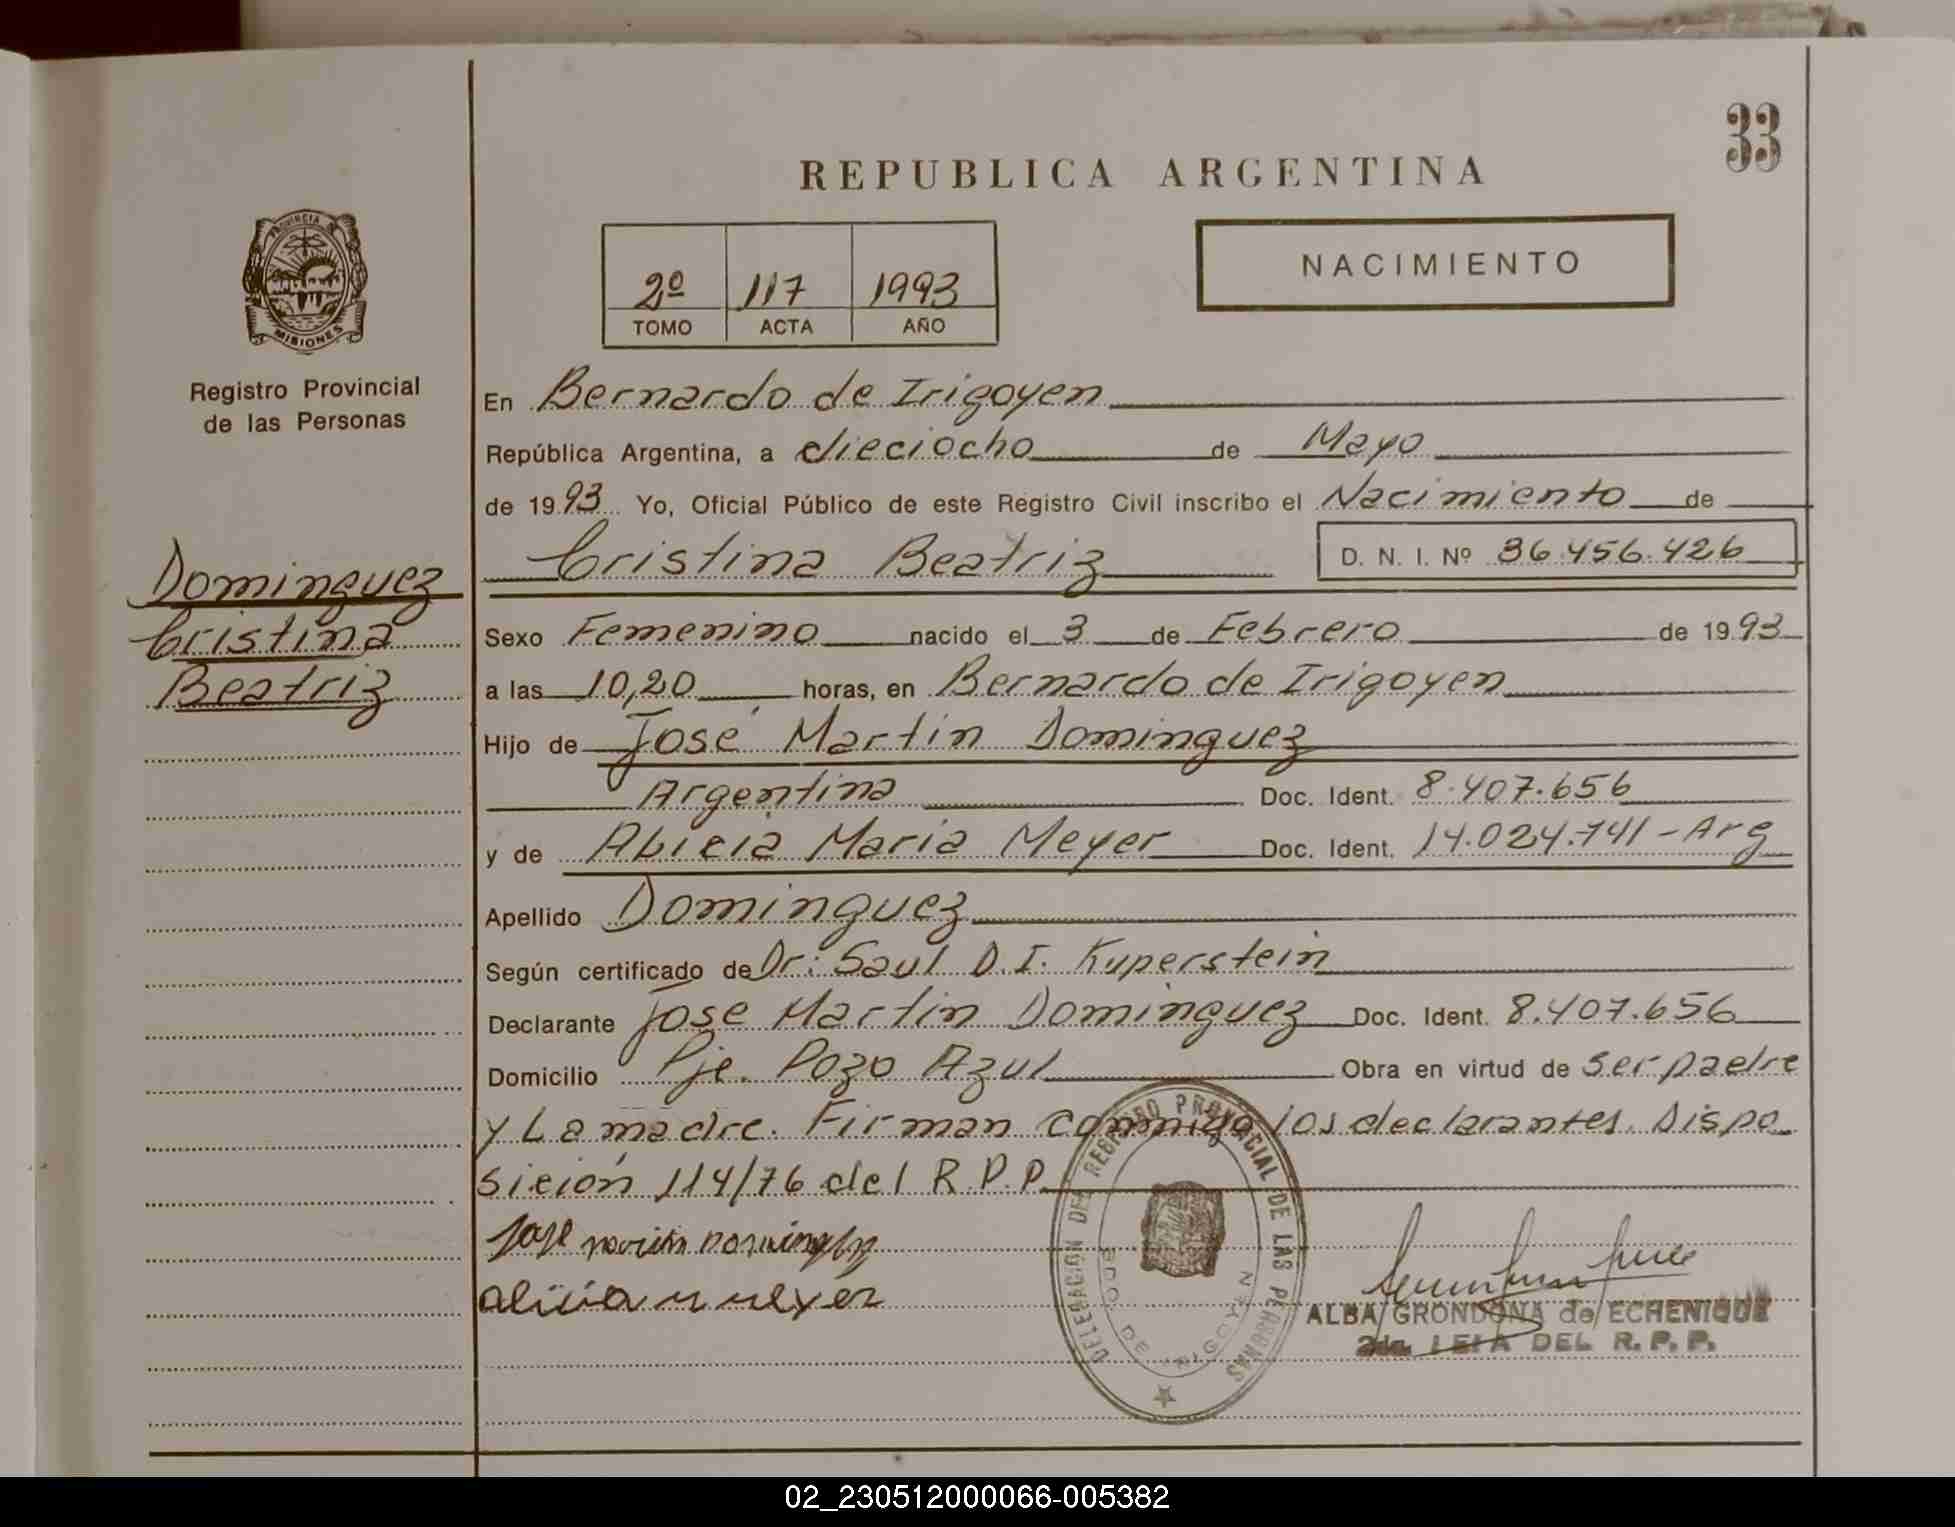 33
REPUBLICA ARGENTINA
PROVINCIA DE
MISIONES
Registro Provincial
de las Personas
2º 117 1993
TOMO ACTA AÑO
NACIMIENTO
En Bernardo de Irigoyen
República Argentina, a dieciocho de Mayo
de 1993 Yo, Oficial Público de este Registro Civil inscribo el Nacimiento de
Cristina Beatriz D. N. I. Nº 36.456.426
Dominguez
Cristina
Beatriz
Sexo Femenino nacido el 3 de Febrero de 1993
a las 10,20 horas, en Bernardo de Irigoyen
Hijo de José Martin Dominguez
Argentina Doc. Ident. 8.407.656
y de Alicia Maria Meyer Doc. Ident. 14.024.741 - Arg
Apellido Dominguez
Según certificado de Dr: Saul D. I. Kuperstein
Declarante Jose Martin Dominguez Doc. Ident. 8.407.656
Domicilio Pje. Pozo Azul Obra en virtud de ser padre
y La madre. Firman conmigo los declarantes. Dispo
sición 114/76 del R.P.P.
Jose Martin Dominguez
alicia m meyer
DELEGACION DEL REGISTRO PROVINCIAL DE LAS PERSONAS
BDO. DE IRIGOYEN
ALBA GRONDONA de ECHENIQUE
2da. JEFA DEL R. P. P.
02_230512000066-005382